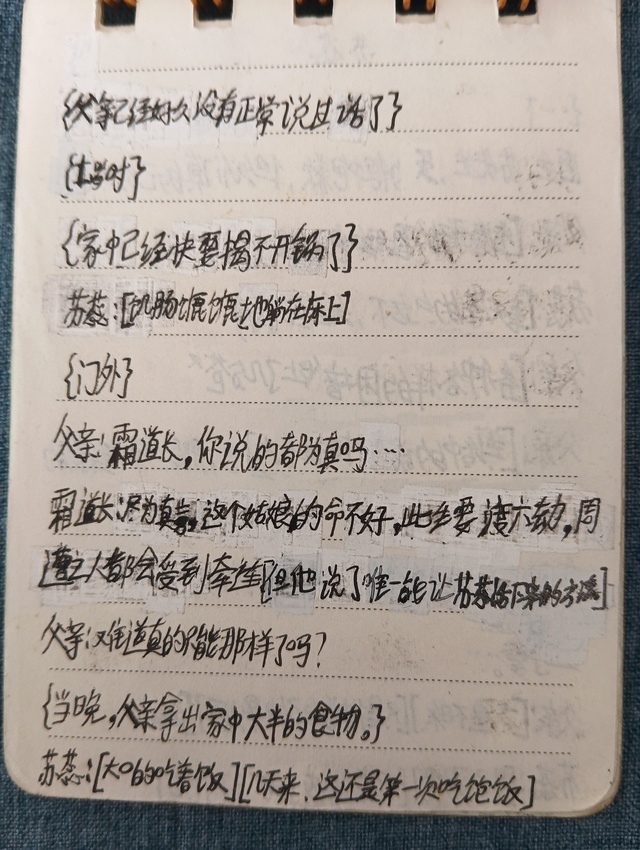 {父亲已经好久没有正常说过话了}
{时}
{家中已经快要揭不开锅了}
苏蕊:[饥肠辘辘地躺在床上]
{门外}
父亲:霜道长,你说的都为真吗…
霜道长:尽为真言,这个姑娘的命不好,此生要渡六劫,周
遭之人都会受到牵连[但他说了唯一能让苏蕊活下来的方法]
父亲:难道真的只能那样了吗?
{当晚,父亲拿出家中大半的食物。}
苏蕊:[大口的吃着饭][几天来,这还是第一次吃饱饭]